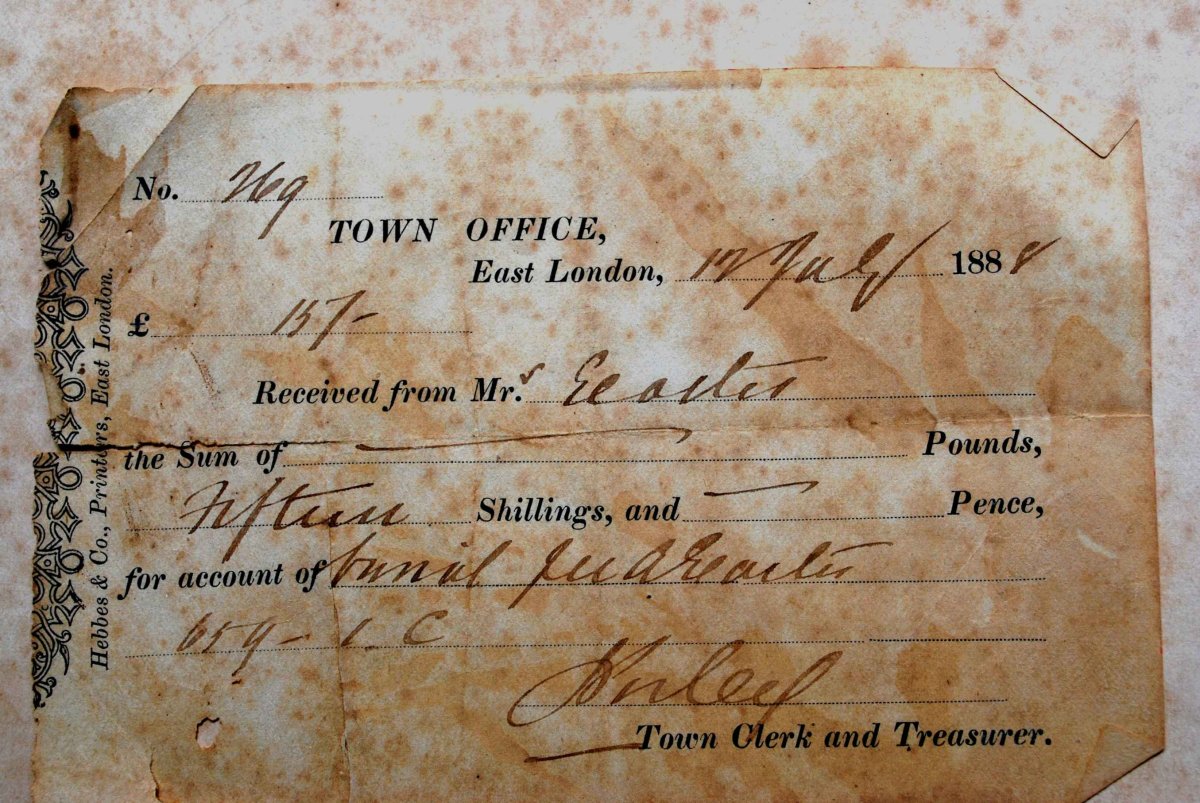 No. 269
TOWN OFFICE,
East London, 17 July 1888
£ 15/-
Received from Mrs.
the Sum of — Pounds,
Fifteen Shillings, and — Pence,
for account of burial fee
659 - 1. C
Town Clerk and Treasurer.
Hebbes & Co., Printers, East London.